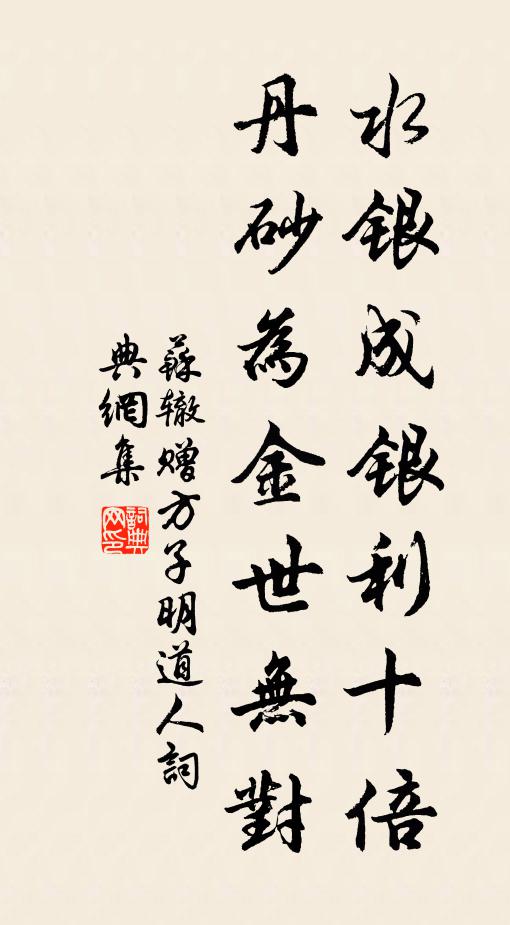 水銀成銀利十倍
丹砂為金世無對
蘇辙贈方子明道人詞
典網集
詞典
网印